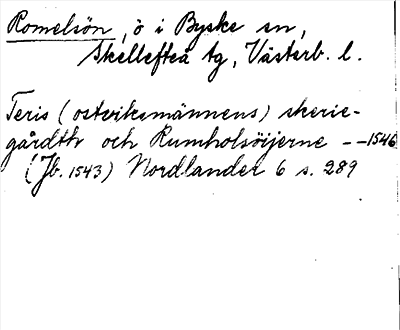 Romelsön, ö i Byske sn,
Skellefteå tg, Västerb. l.
Teris (ostviksmännens) skerie-
gårdth och Rumholsöijerne -- 1546
(Jb. 1543) Nordlander 6 s. 289